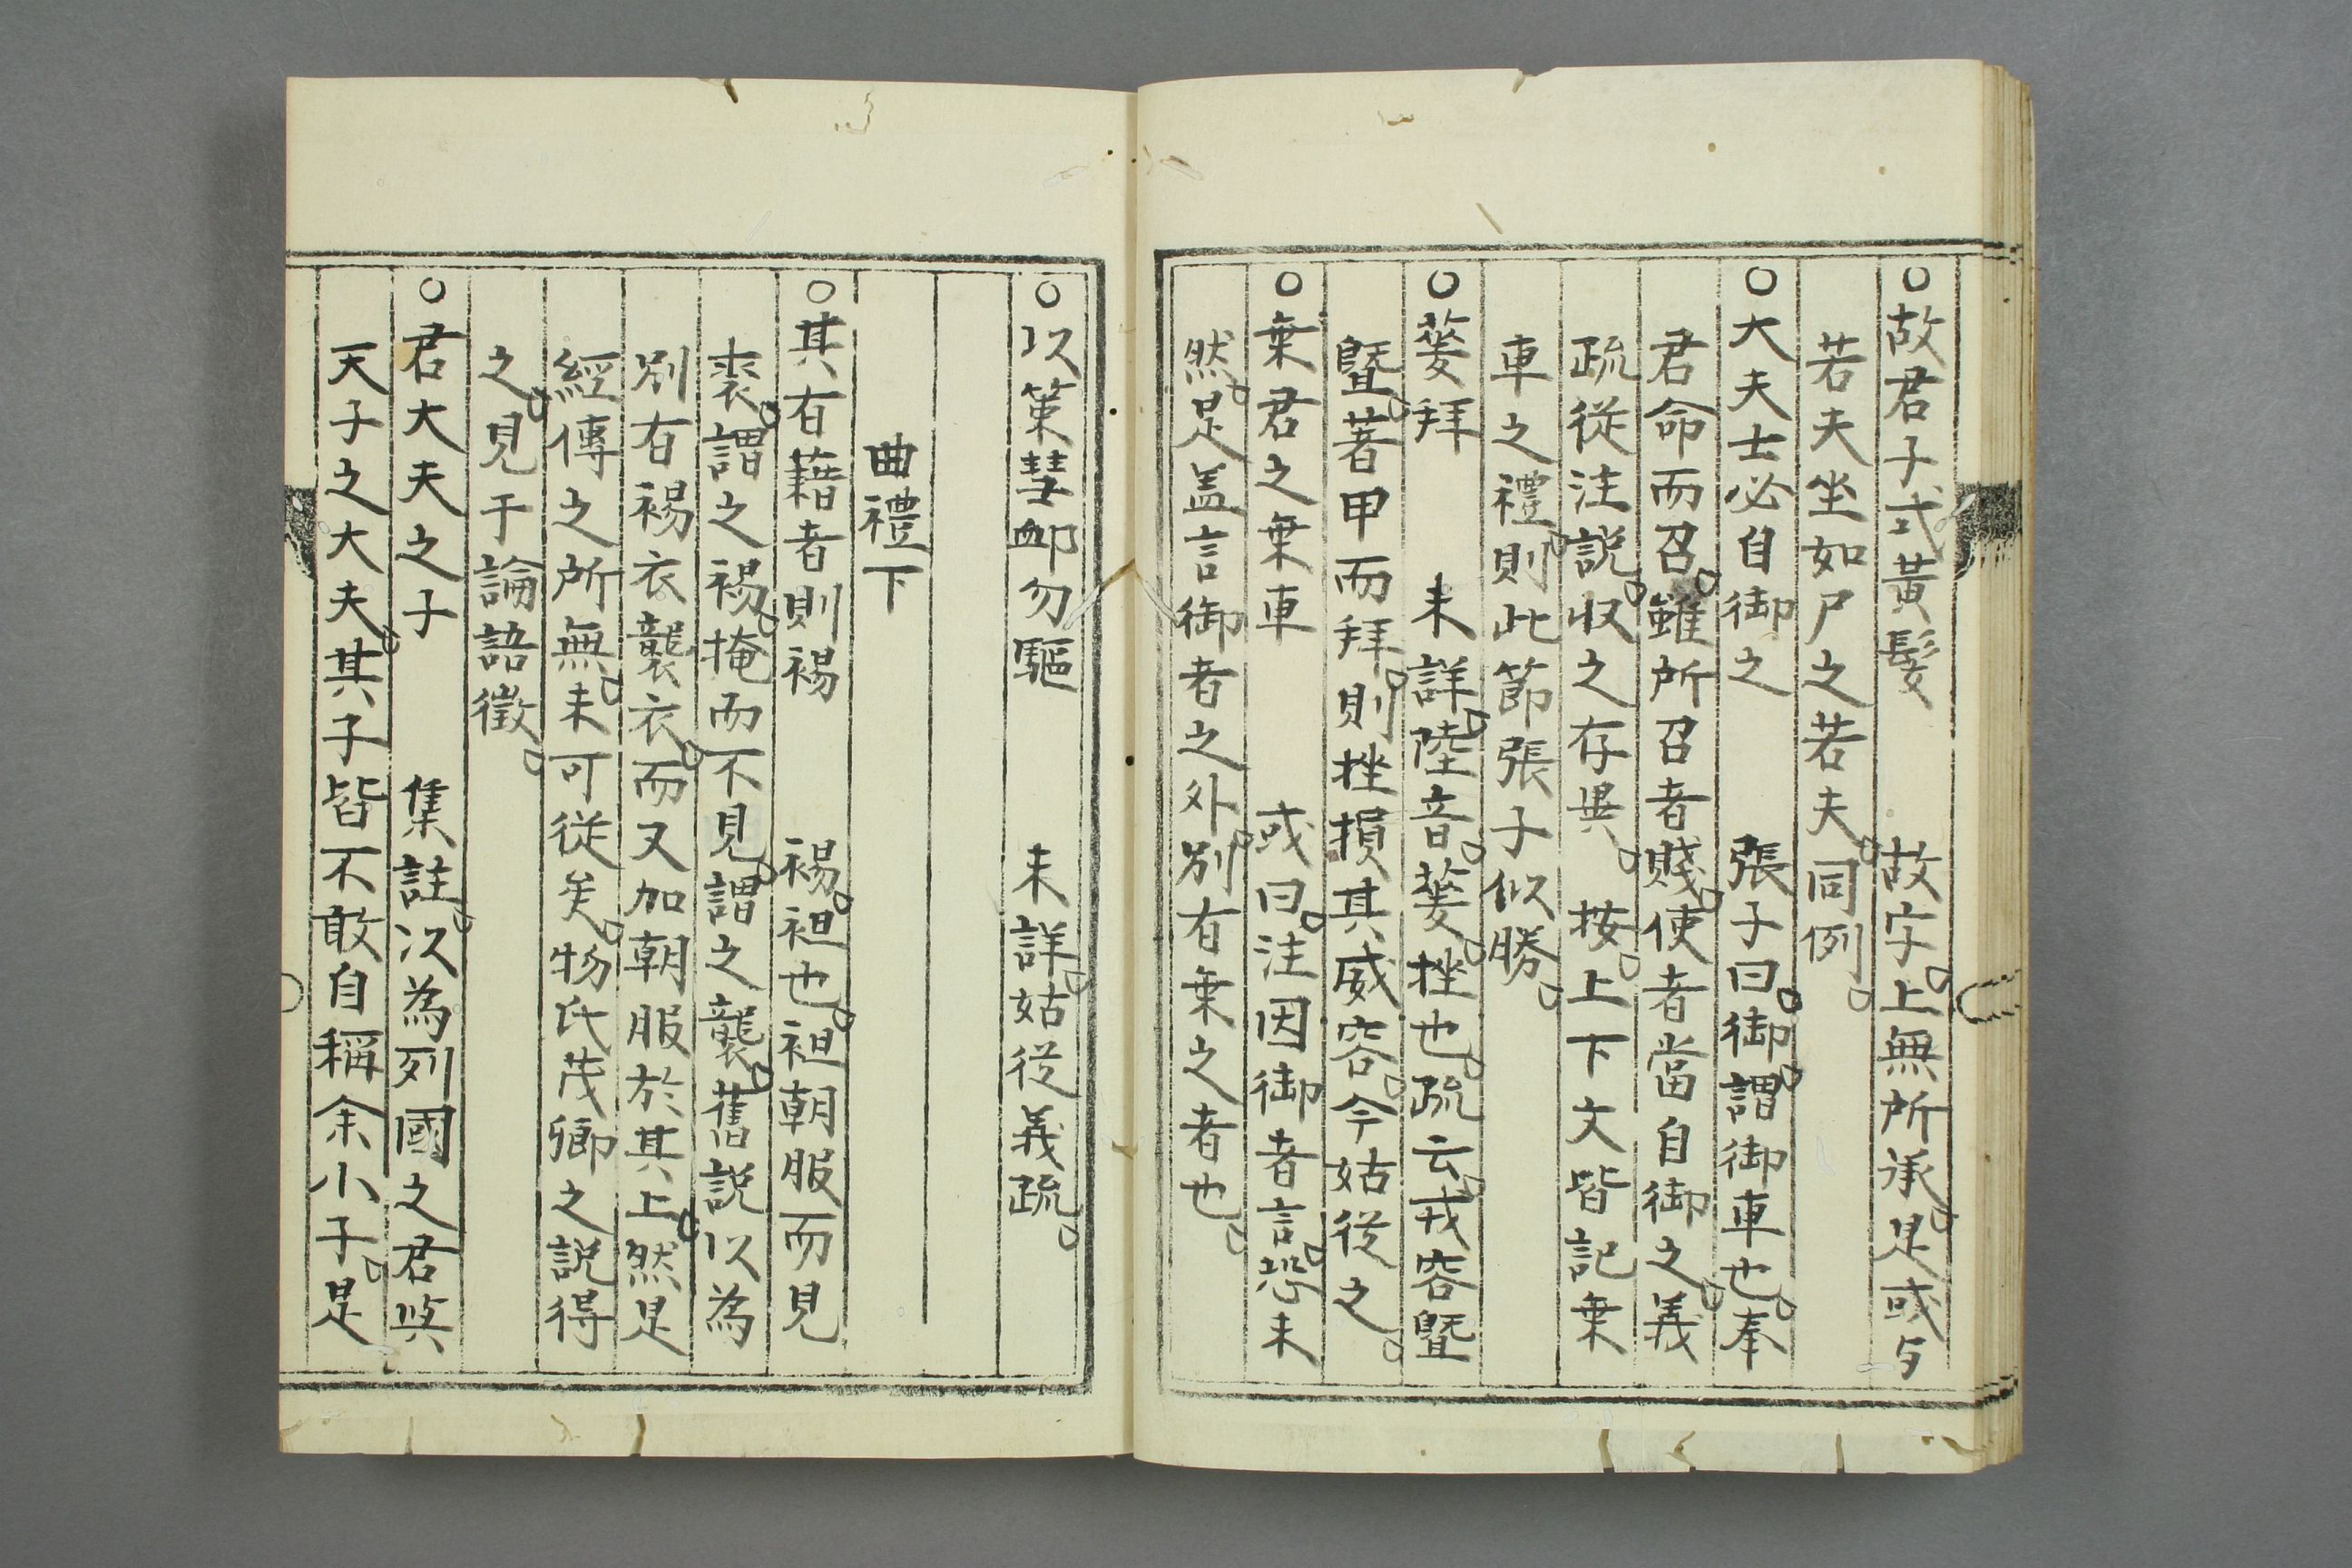 ○故君子式黃髮　故字上無所承是或与
若夫坐如尸之若夫同例
○大夫士必自御之　張子曰御謂御車也奉
君命而召雖所召者賤使者當自御之義
疏從注説收之存異　按上下文皆記乗
車之禮則此節張子似勝
○蓌拜　未詳陸音蓌挫也疏云戎容曁
曁著甲而拜則挫損其威容今姑從之
○乗君之乗車　或曰注因御者言恐未
然是盖言御者之外別有乗之者也
○以策彗卹勿驅　未詳姑從義疏
曲禮下
○其有藉者則裼　裼袒也袒朝服而見
裘謂之裼掩而不見謂之襲舊説以為
別有裼衣襲衣而又加朝服於其上然是
經傳之所無未可從矣物氏茂卿之説得
之見于論語徵
○君大夫之子　集註以為列國之君與
天子之大夫其子皆不敢自稱余小子是